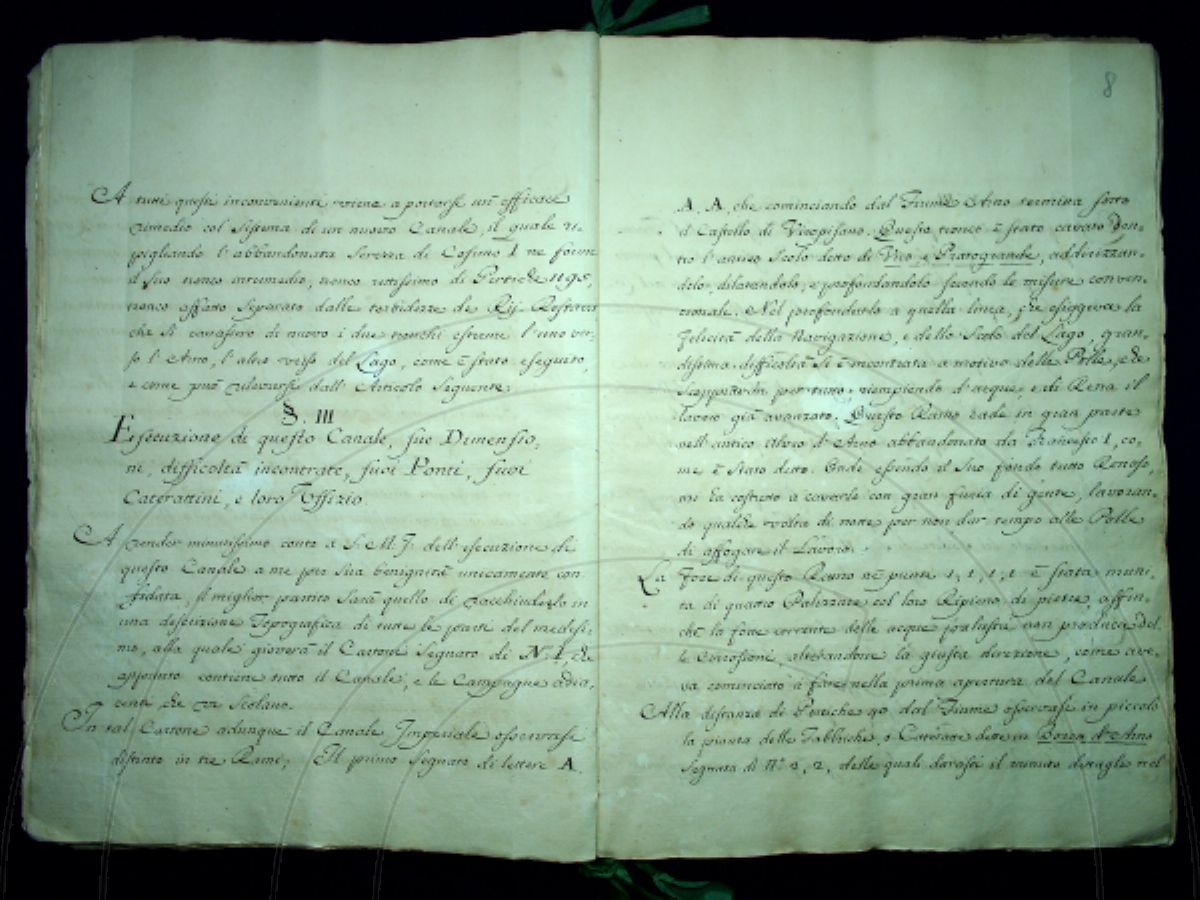 A tutti questi inconvenienti viene a portarsi un' efficace
rimedio col sistema di un nuovo Canale, il quale ri-
pigliando l'abbandonata Serezza di Cosimo I ne forma
il suo tronco intermedio, tronco rettissimo di Pertiche
tronco affatto separato dalle torbidezze de Rij. Restava
che si cavassero di nuovo i due tronchi estremi l'uno ver-
so l'Arno, l'altro verso del Lago, come è stato eseguito,
e come può rilevarsi dall' Articolo seguente.
§. III
Esecuzione di questo Canale, sue Dimensio,
ni, difficoltà incontrate, suoi Ponti, suoi
Caterattini, e loro Uffizio.
A render minutissimo conto a S. M. I. dell' esecuzione di
questo Canale a me per sua benignità unicamente con
fidata, il miglior partito sarà quello di racchiuderlo in
una descrizione Topografica di tutte le parti del medesi-
mo, alla quale gioverà il Cartone segnato di N. I, che
appunto contiene tutto il Canale, e le Campagne adia,
centi che vi scolano.
In tal Cartone adunque il Canale Imperiale osservasi
distinto in tre Rami; Il primo segnato di lettere A.
8
A. A. che cominciando dal Fiume Arno termina sotto
il Castello di Vicopisano. Questo tronco è stato cavato den-
tro l'antico Scolo detto di Vico e Pratogrande, addirizzan-
dolo, dilatandolo, e profondandolo secondo le misure conven-
zionale. Nel profondarlo a quella linea, che esiggeva la
felicità della Navigazione, e dello Scolo del Lago, gran-
dissima difficoltà si è incontrata a motivo delle Polle, che
scappavan per tutto, riempiendo d'acque, e di Rena il
lavoro già avanzato. Questo Ramo cade in gran parte
nell'antico Alveo d'Arno abbandonato da Francesco I, co-
me è stato detto. Onde essendo il suo fondo tutto Renoso,
mi ha costretto a cavarlo con gran furia di gente, lavoran-
do qualche volta di notte per non dar tempo alle Polle
di affogare il Lavoro.
La foce di questo Ramo ne punti 1, 1, 1, 1 è stata muni-
ta di quattro Palizzate col loro Ripieno di pietre, affin-
chè la forte corrente delle acque palustri non produca del
le Corrosioni, alterandone la giusta direzione, come ave-
va cominciato a fare nella prima apertura del Canale
Alla distanza di Pertiche 90 dal Fiume osservasi in piccolo
la pianta delle Fabbriche, o Cateratte dette in Bocca d'Arno
segnata di N.° 2, 2, delle quali darassi il minuto dettaglio nel